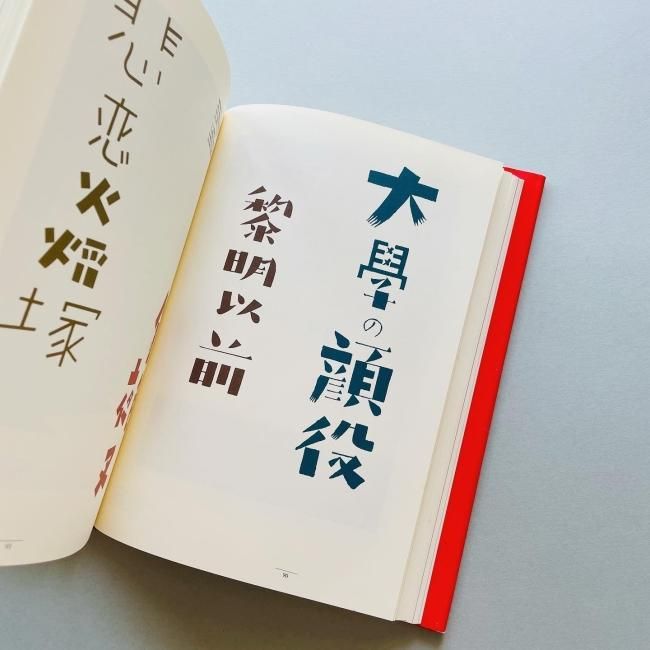 大學の顔役
黎明以前
悲恋火焔塚